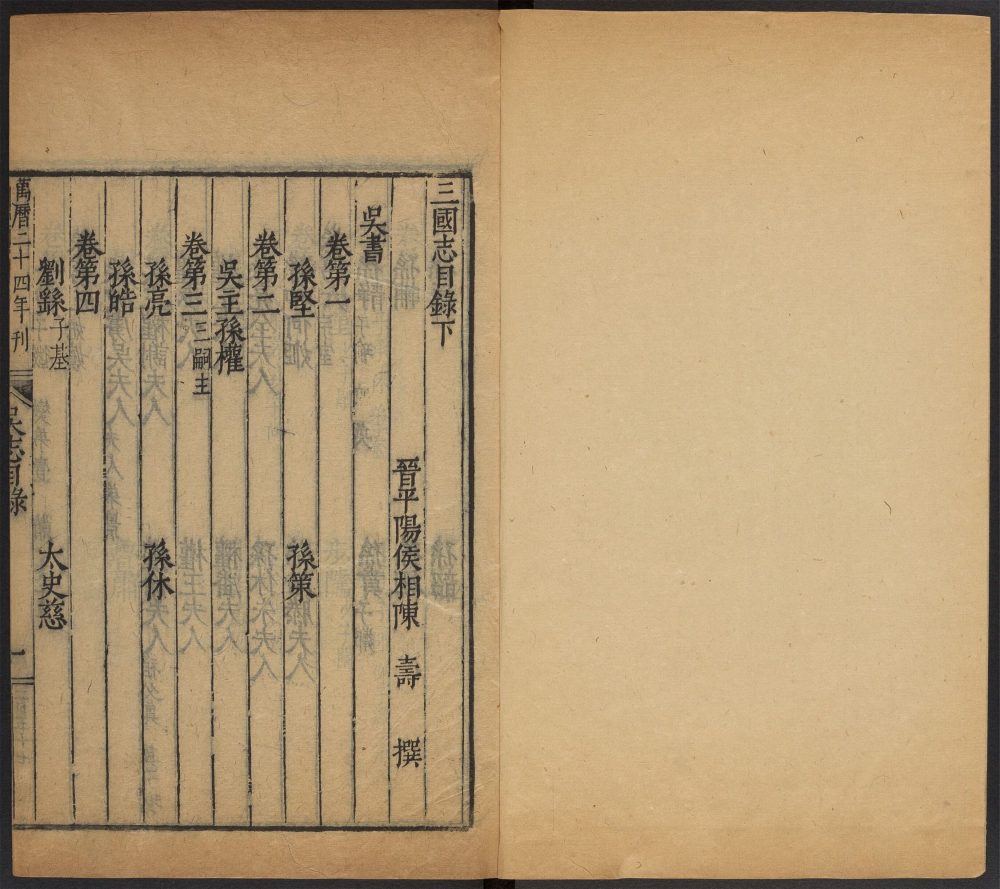 三國志目錄下
晉平陽侯相陳壽撰
吳書
卷第一
孫堅 孫策
卷第二
吳主孫權
卷第三 三嗣主
孫亮 孫休
孫皓
卷第四
劉繇 子基 太史慈
萬曆二十四年刊
吳志目錄 一